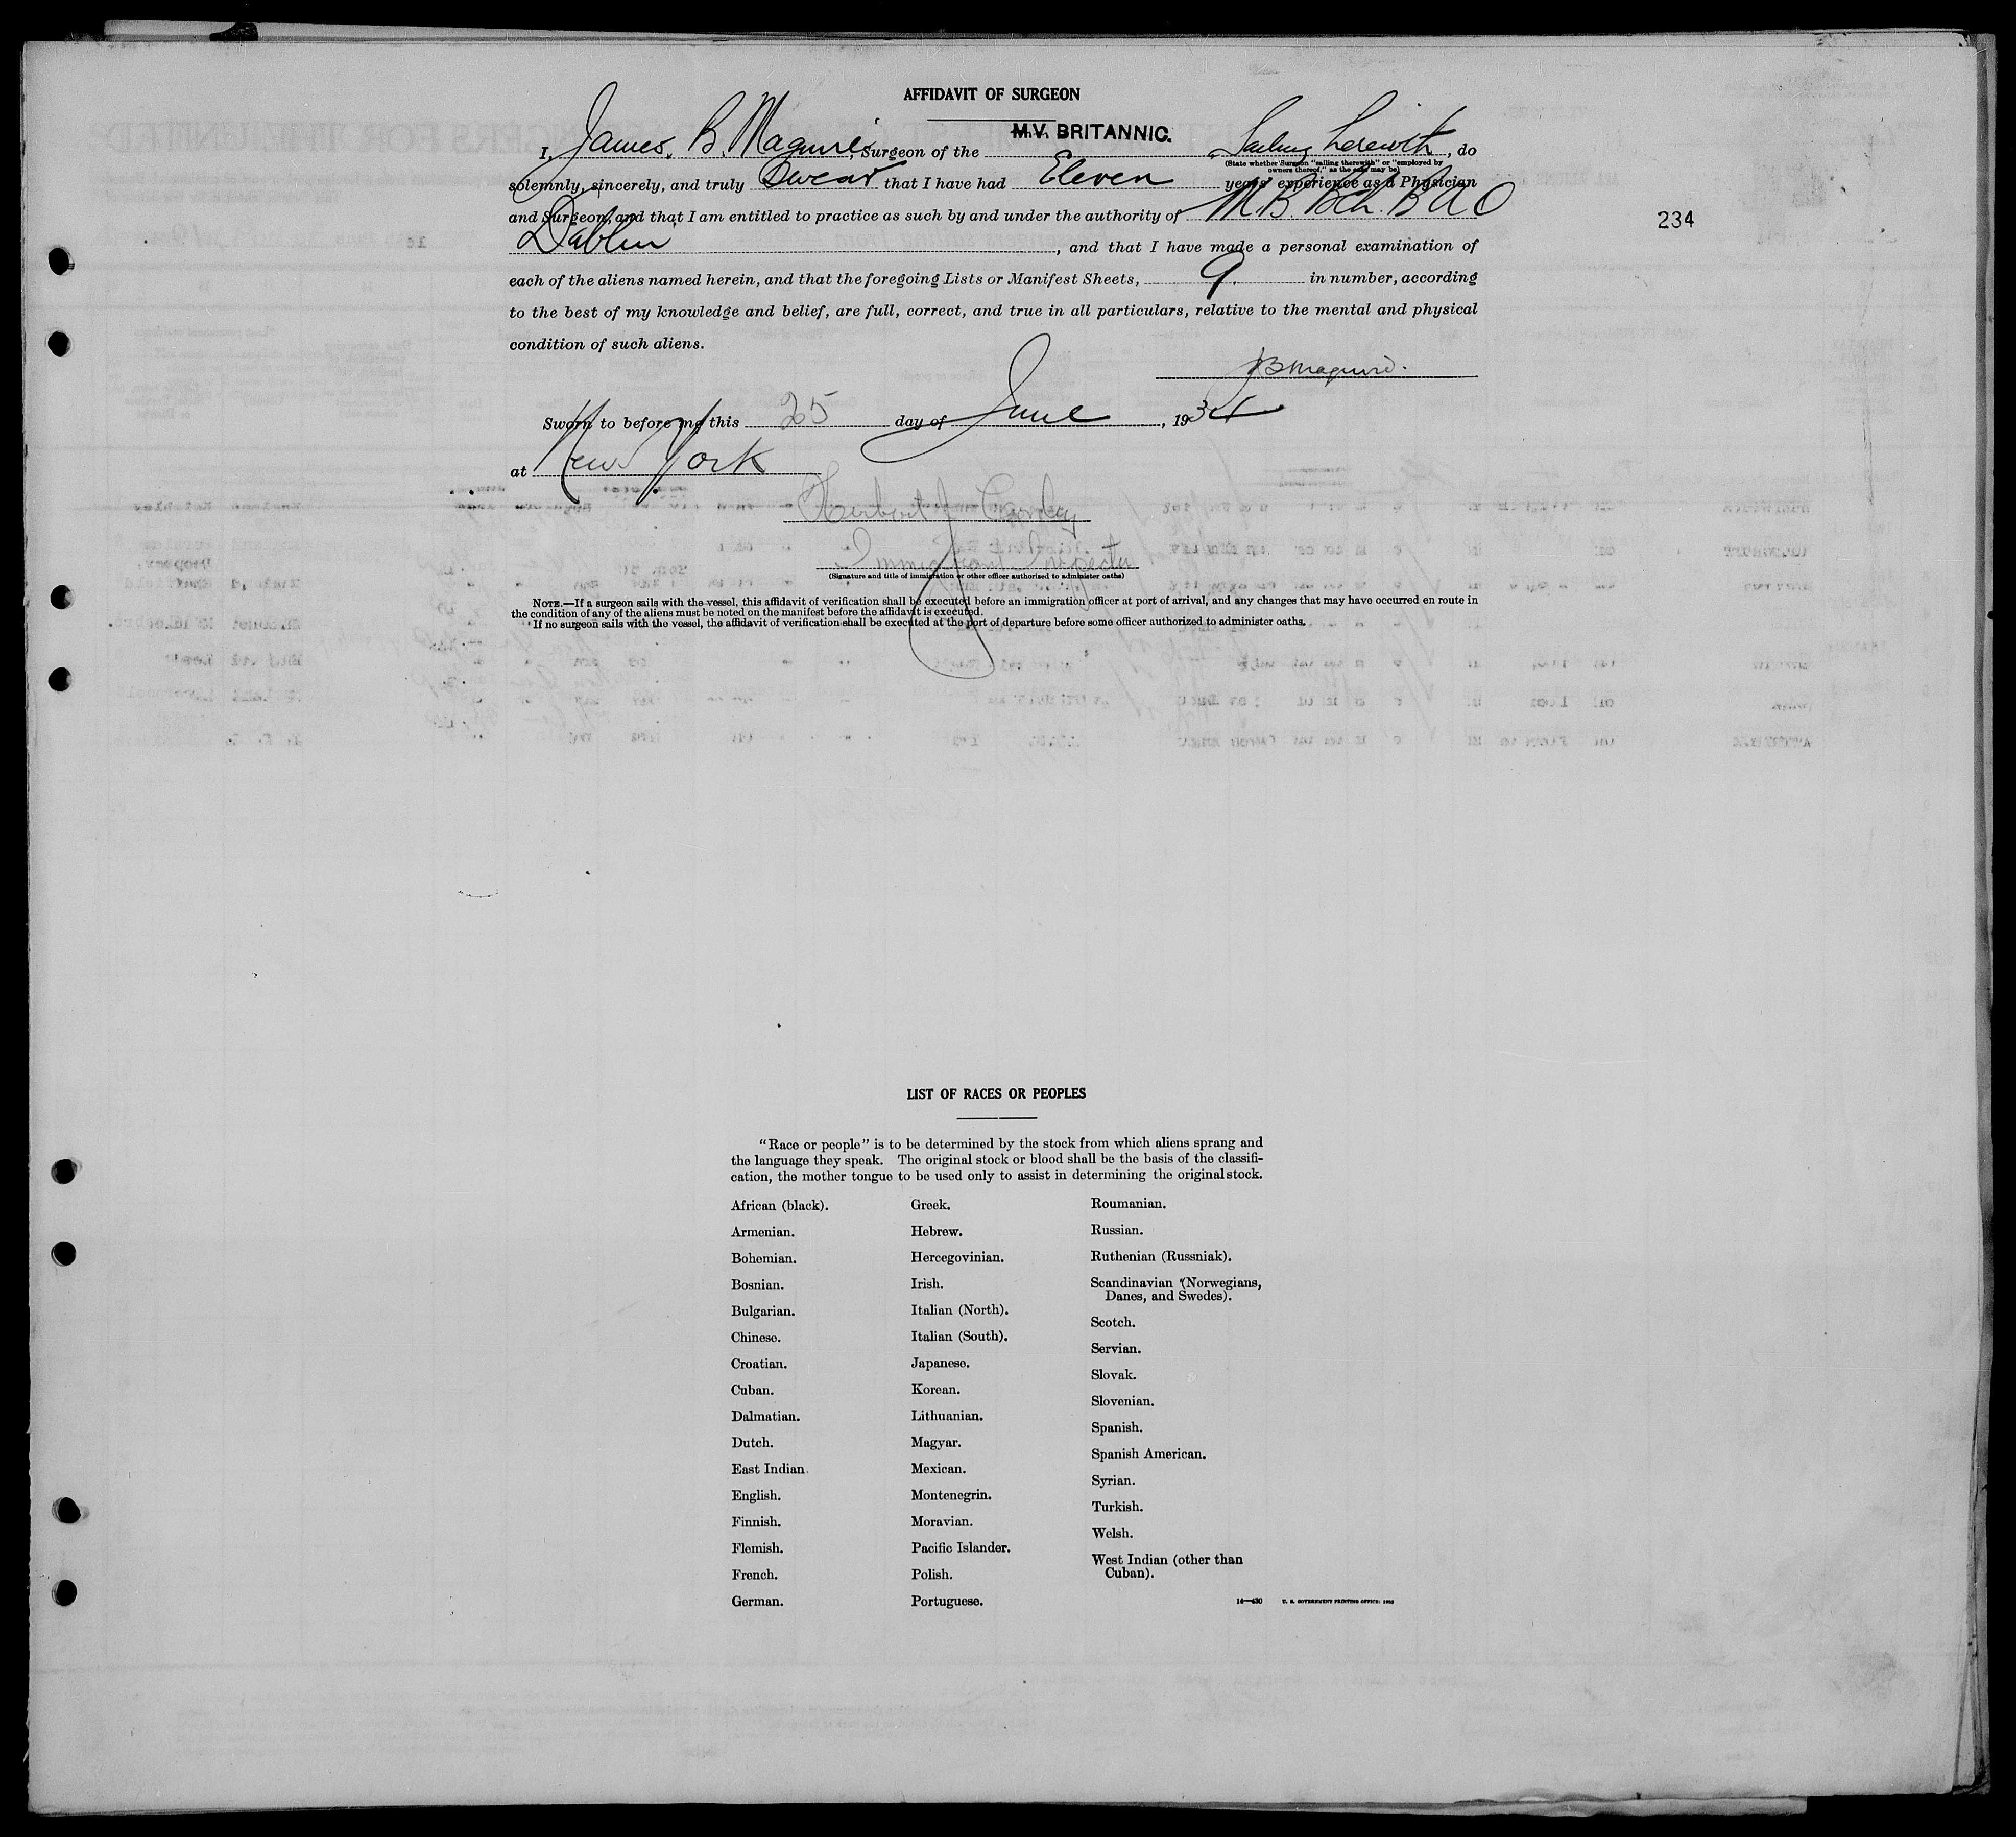 AFFIDAVIT OF SURGEON
I, James. B. Maguire, Surgeon of the M.V. BRITANNIC. Sailing herewith, do
(State whether Surgeon "sailing therewith" or "employed by
owners thereof," as the case may be)
solemnly, sincerely, and truly swear that I have had Eleven years' experience as a Physician
and Surgeon, and that I am entitled to practice as such by and under the authority of M.B. Bch. B A O
Dublin, and that I have made a personal examination of
each of the aliens named herein, and that the foregoing Lists or Manifest Sheets, 9. in number, according
to the best of my knowledge and belief, are full, correct, and true in all particulars, relative to the mental and physical
condition of such aliens.
JBMaguire.
Sworn to before me this 25 day of June, 1934
at New York
Herbert J
Immigrant Inspector
(Signature and title of immigration or other officer authorized to administer oaths)
NOTE.—If a surgeon sails with the vessel, this affidavit of verification shall be executed before an immigration officer at port of arrival, and any changes that may have occurred en route in
the condition of any of the aliens must be noted on the manifest before the affidavit is executed.
If no surgeon sails with the vessel, the affidavit of verification shall be executed at the port of departure before some officer authorized to administer oaths.
234
LIST OF RACES OR PEOPLES
"Race or people" is to be determined by the stock from which aliens sprang and
the language they speak. The original stock or blood shall be the basis of the classifi-
cation, the mother tongue to be used only to assist in determining the original stock.
African (black).
Armenian.
Bohemian.
Bosnian.
Bulgarian.
Chinese.
Croatian.
Cuban.
Dalmatian.
Dutch.
East Indian.
English.
Finnish.
Flemish.
French.
German.
Greek.
Hebrew.
Hercegovinian.
Irish.
Italian (North).
Italian (South).
Japanese.
Korean.
Lithuanian.
Magyar.
Mexican.
Montenegrin.
Moravian.
Pacific Islander.
Polish.
Portuguese.
Roumanian.
Russian.
Ruthenian (Russniak).
Scandinavian (Norwegians,
Danes, and Swedes).
Scotch.
Servian.
Slovak.
Slovenian.
Spanish.
Spanish American.
Syrian.
Turkish.
Welsh.
West Indian (other than
Cuban).
14—430 U. S. GOVERNMENT PRINTING OFFICE: 1932